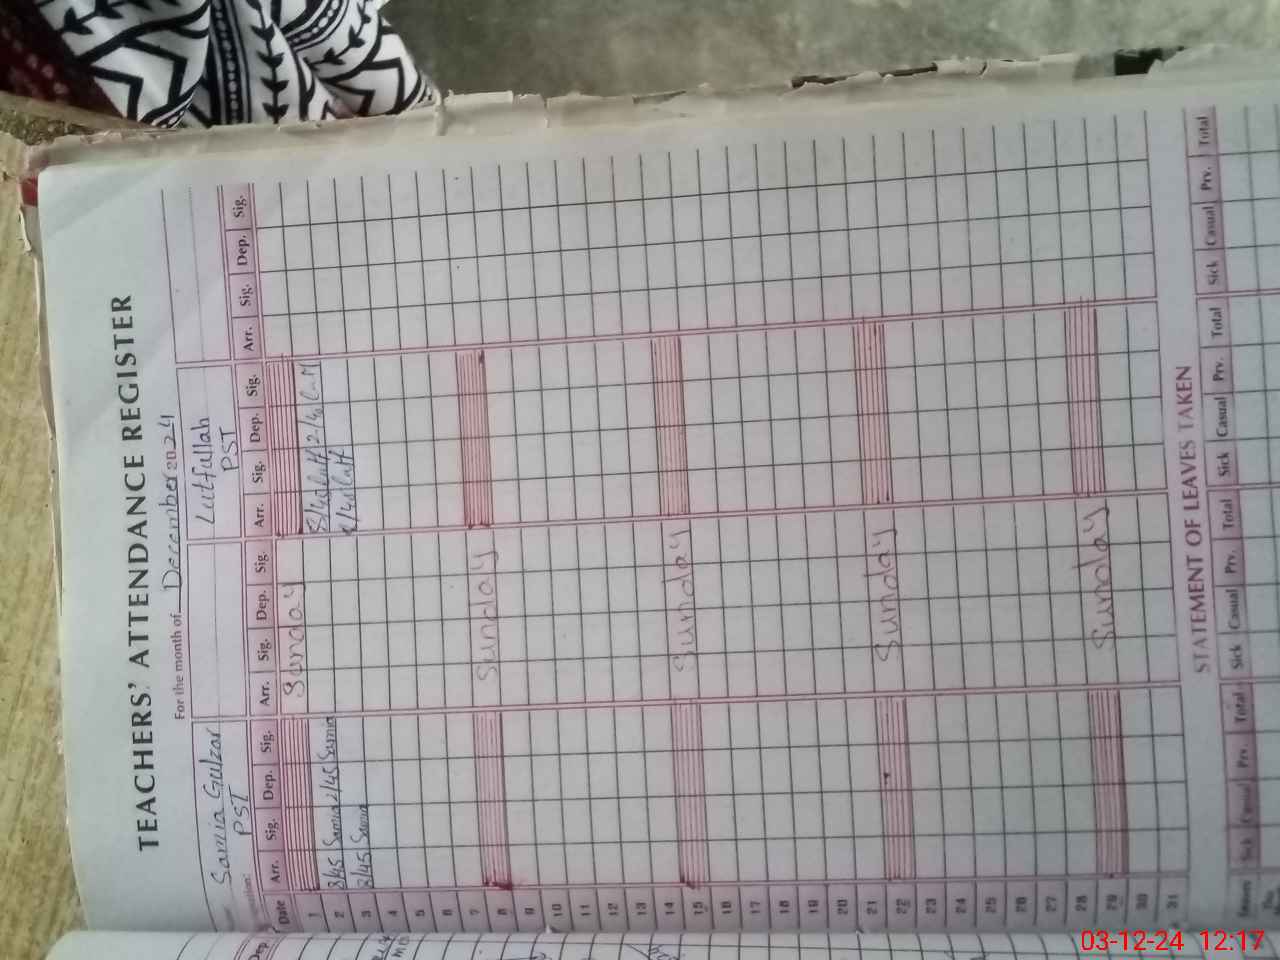 TEACHERS' ATTENDANCE REGISTER
For the month of December 2024
Samia Gulzar Lutfullah
PST PST
Date Arr. Sig. Dep. Sig. Arr. Sig. Dep. Sig. Arr. Sig. Dep. Sig. Arr. Sig. Dep. Sig.
1 Sunday
2 8/45 Samia 2/45 Samia 8/40 Lutf 2/40
3 8/45 Samia 8/40 Lutf
4
5
6
7
8 Sunday
9
10
11
12
13
14
15 Sunday
16
17
18
19
20
21
22 Sunday
23
24
25
26
27
28
29 Sunday
30
31
STATEMENT OF LEAVES TAKEN
Sick Casual Prv. Total Sick Casual Prv. Total Sick Casual Prv. Total Sick Casual Prv. Total
03-12-24 12:17